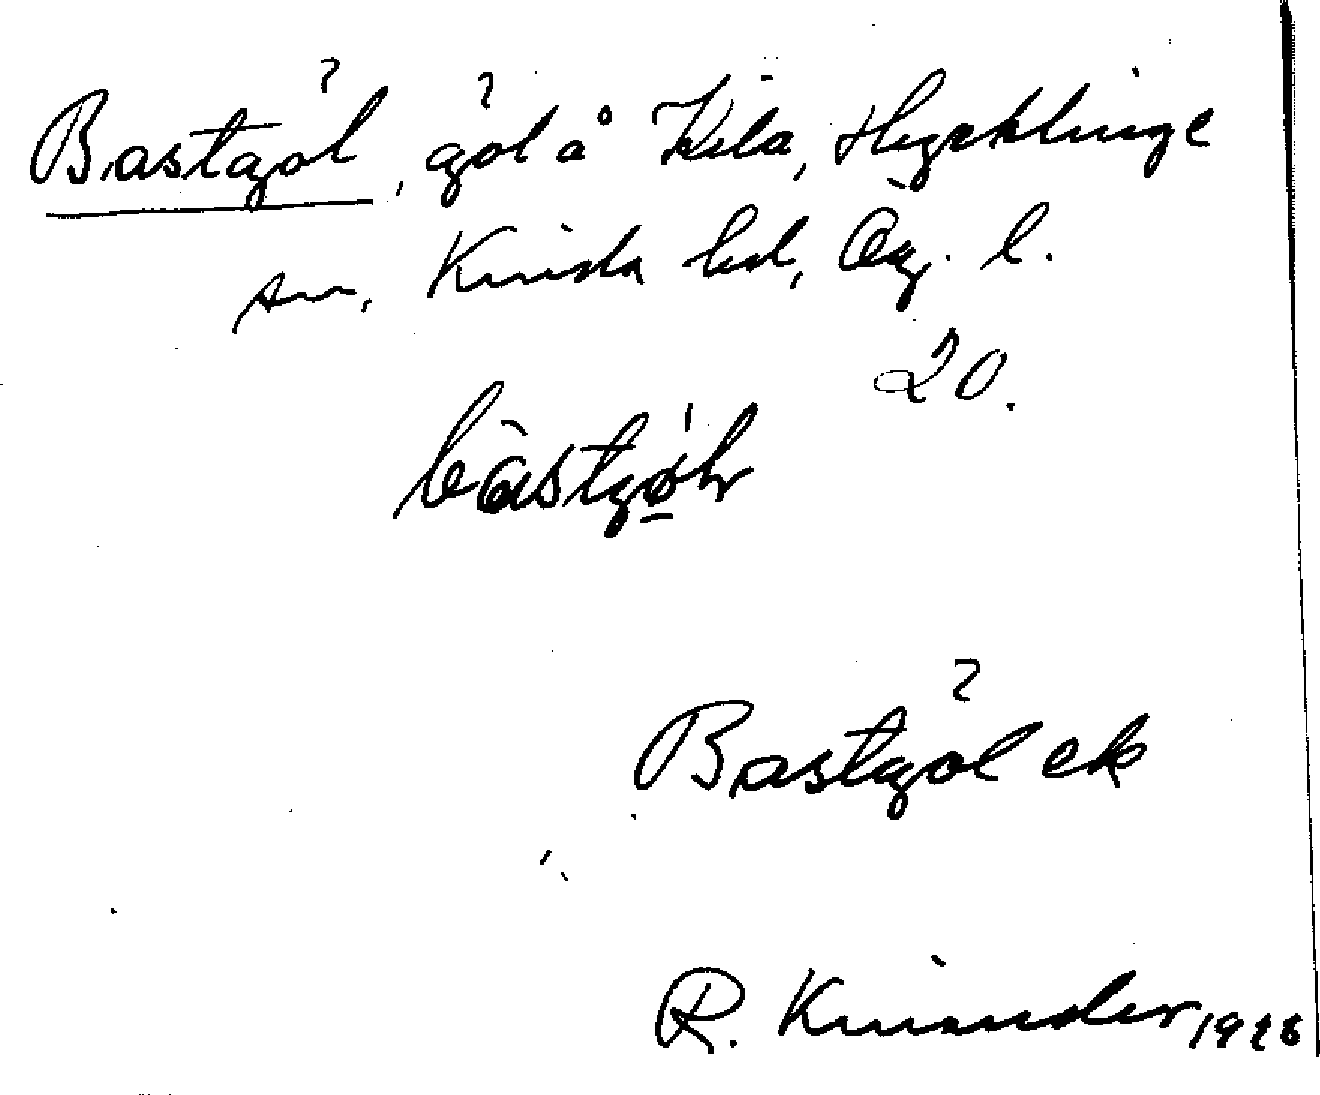 Bastgöl, göl å Kila, Hycklinge
sn, Kinda hd, Ög. l.
20.
Bastgöl ek
R. Kinander 1926